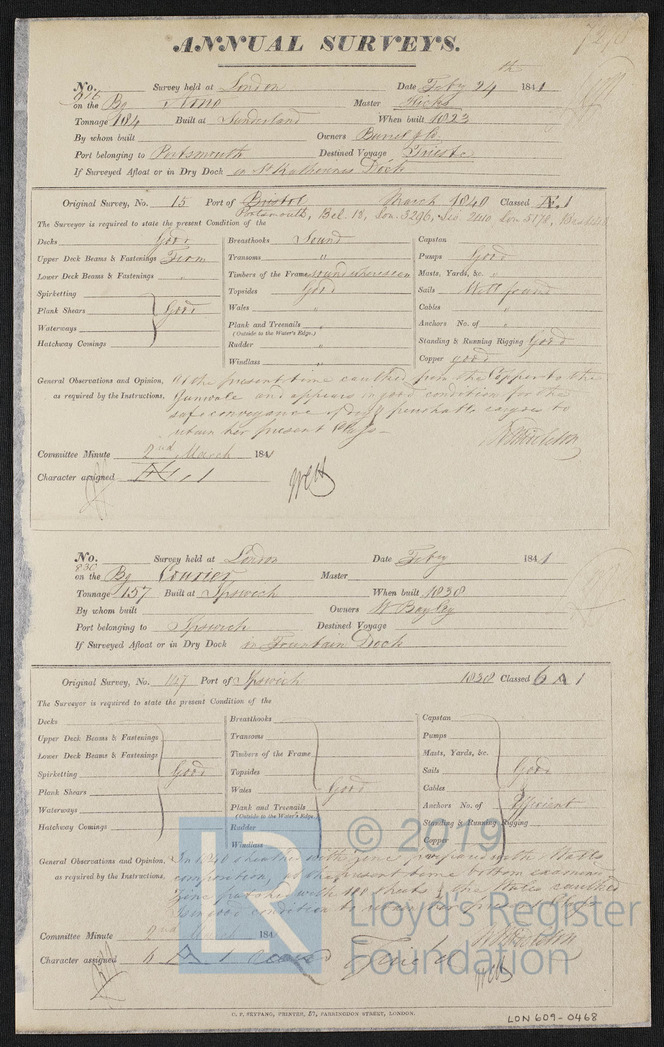 ANNUAL SURVEYS.
No. 816 Survey held at London Date Feby 24th 1841
on the Bg Master Hicks
Tonnage 184 Built at Sunderland When built 1823
By whom built Owners
Port belonging to Portsmouth Destined Voyage Trieste
If Surveyed Afloat or in Dry Dock in St Katherines Dock
Original Survey, No. 15 Port of Bristol March 1840 Classed Æ 1
Portsmouth, Bel. 18, Lon. 3296, 2410 Lon 5178,
The Surveyor is required to state the present Condition of the
Decks Good
Upper Deck Beams & Fastenings Firm
Lower Deck Beams & Fastenings "
Spirketting
Plank Shears Good
Waterways
Hatchway Comings
Breasthooks Sound
Transoms "
Timbers of the Frame sound where seen
Topsides Good
Wales "
Plank and Treenails "
(Outside to the Water's Edge.)
Rudder "
Windlass "
Capstan
Pumps Good
Masts, Yards, &c. "
Sails Well found
Cables "
Anchors No. of "
Standing & Running Rigging Good
Copper good
General Observations and Opinion, At the present time caulked from the Copper to the
as required by the Instructions, Gunwale and appears in good condition for the
safe conveyance of dry & perishable cargoes to
retain her present Class
Committee Minute 2nd March 1841
Character assigned Æ 1
No. 830 Survey held at London Date Feby 1841
on the Bg Courier Master
Tonnage 157 Built at Ipswich When built 1838
By whom built Owners W Bayley
Port belonging to Ipswich Destined Voyage
If Surveyed Afloat or in Dry Dock in Fountain Dock
Original Survey, No. 127 Port of Ipswich 1838 Classed 6 A 1
The Surveyor is required to state the present Condition of the
Decks
Upper Deck Beams & Fastenings
Lower Deck Beams & Fastenings
Spirketting Good
Plank Shears
Waterways
Hatchway Comings
Breasthooks
Transoms
Timbers of the Frame
Topsides
Wales Good
Plank and Treenails
(Outside to the Water's Edge.)
Rudder
Windlass
Capstan
Pumps
Masts, Yards, &c.
Sails Good
Cables &
Anchors No. of Efficient
Standing & Running Rigging
Copper
General Observations and Opinion, In 1840 sheathed with Zinc prepared with
as required by the Instructions, composition, at the present time bottom examined
Zinc patched with 100 sheets & the Wales caulked
is in good condition to retain her present Class
Committee Minute 2nd March 184
Character assigned 6 A 1
C. F. SEYFANG, PRINTER, 57, FARRINGDON STREET, LONDON.
LON 609-0468
© 2019
LR
Lloyd's Register
Foundation